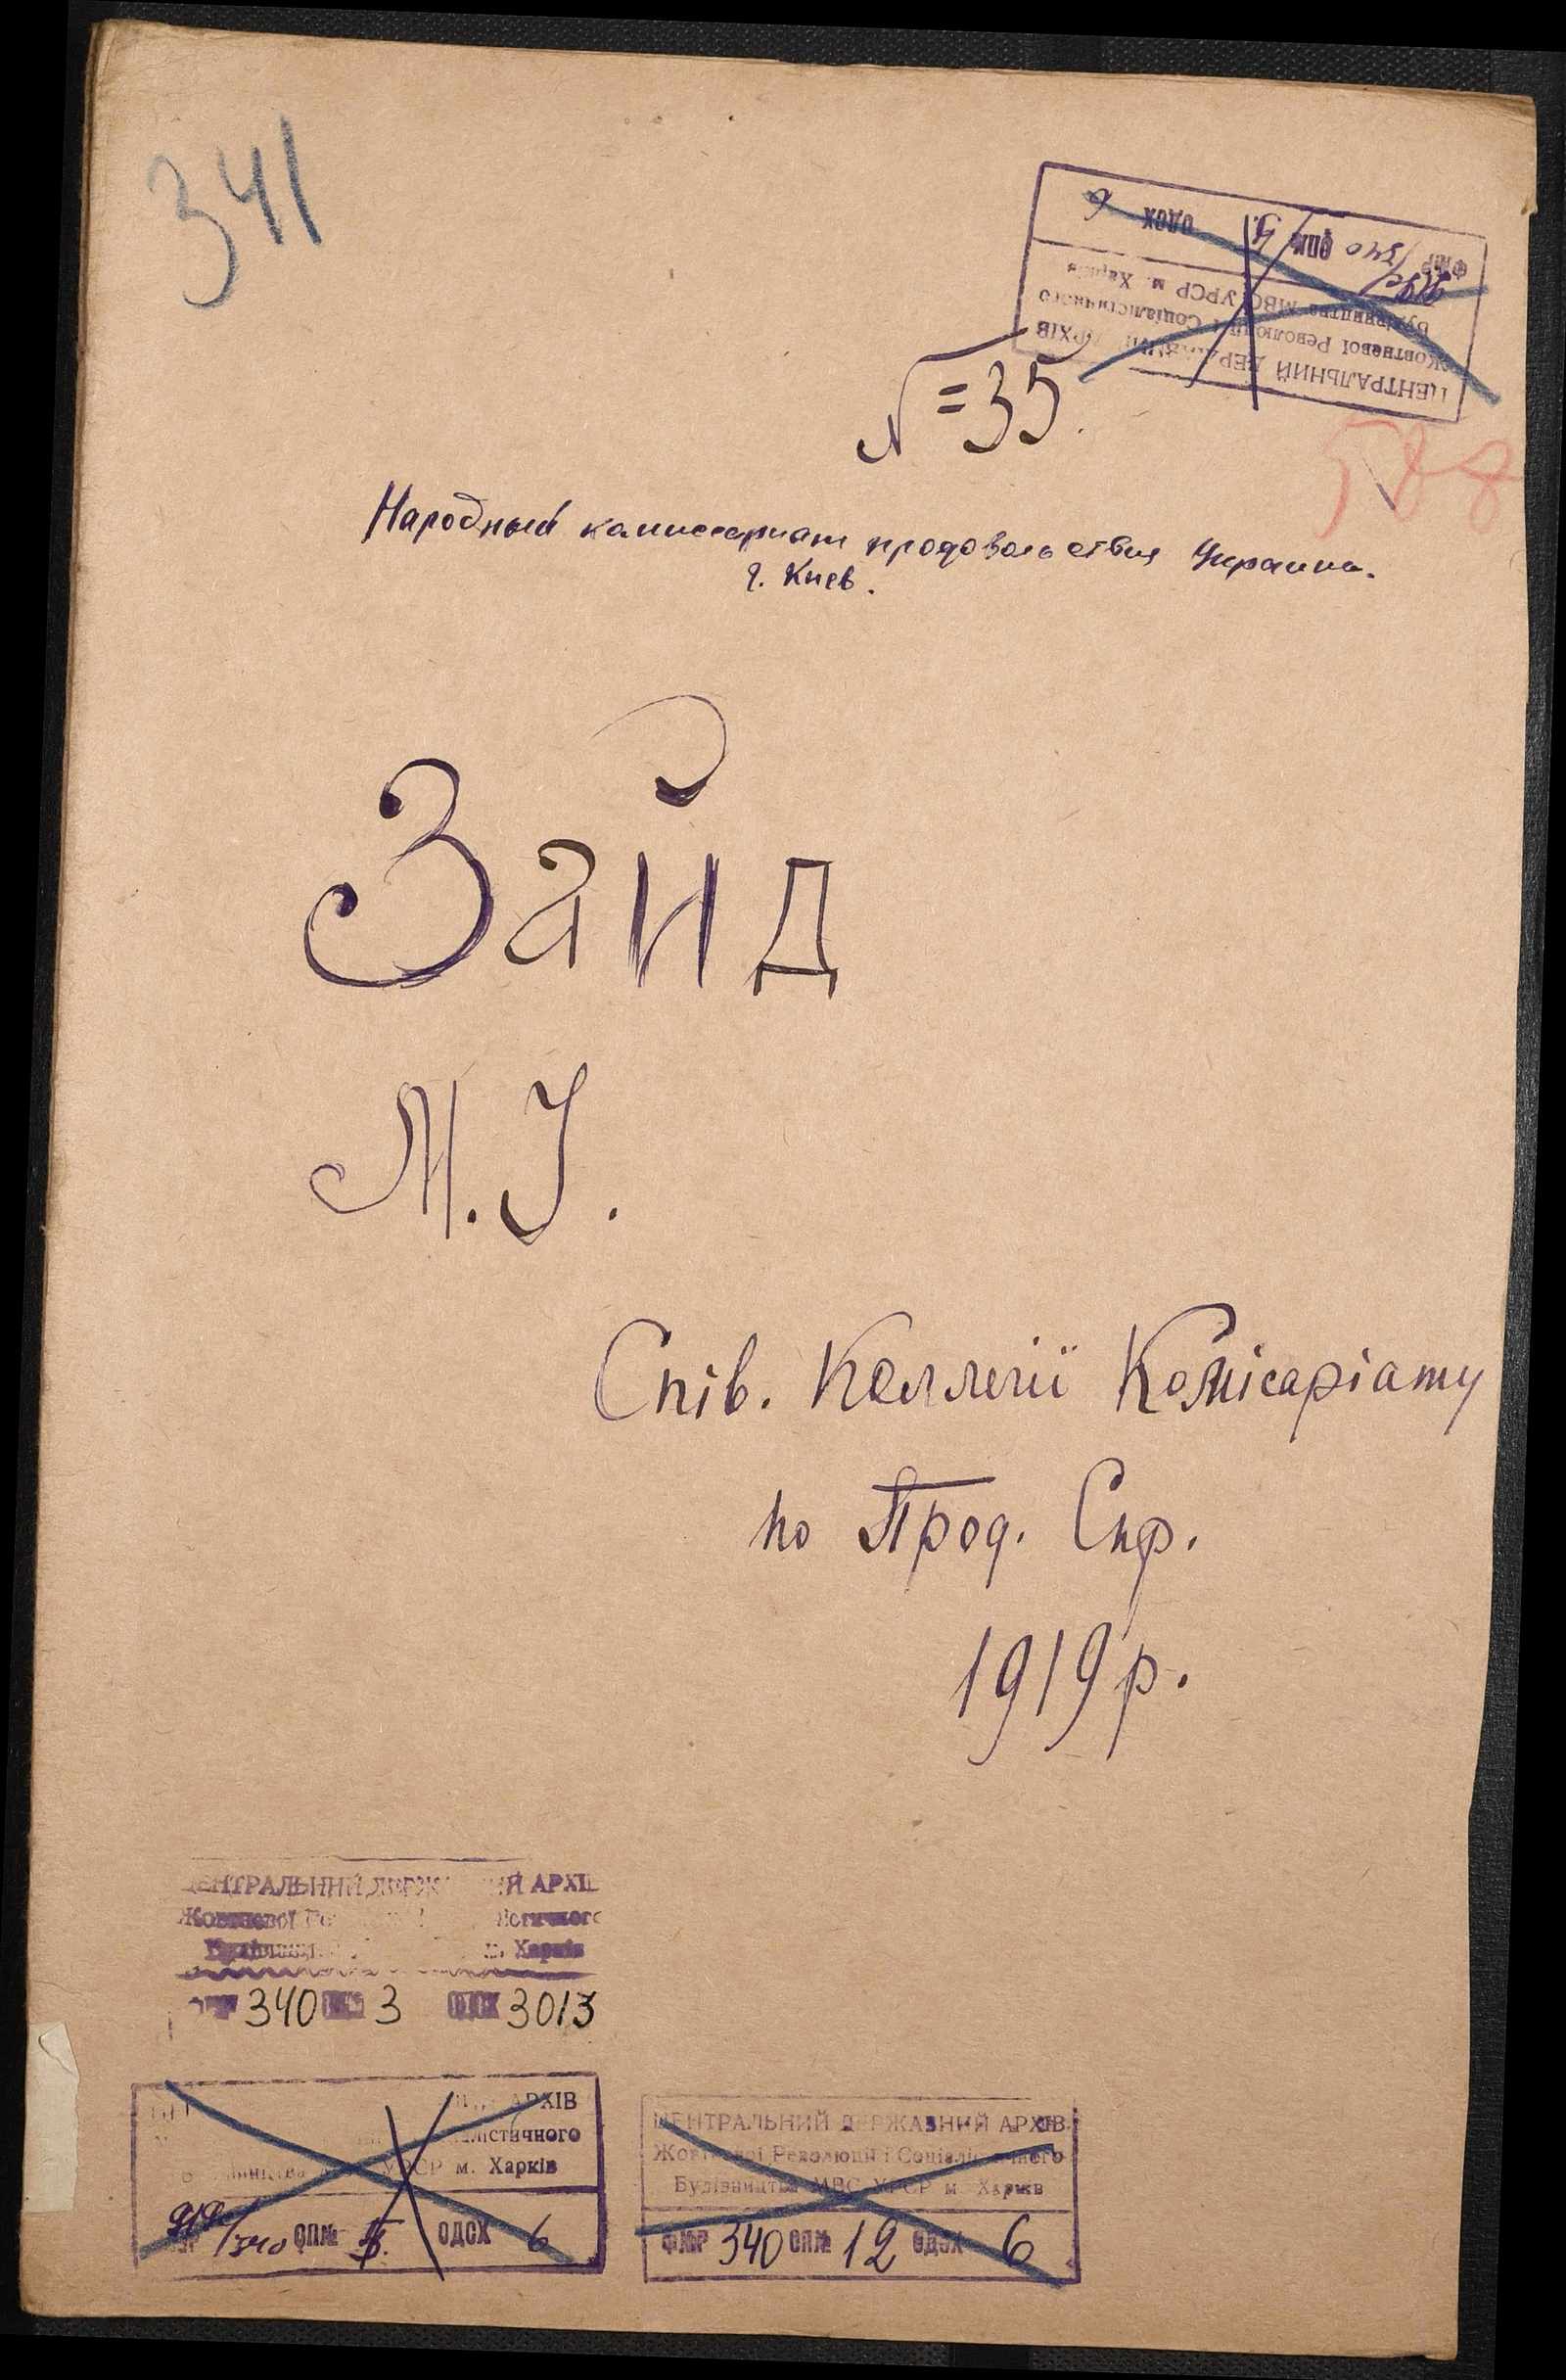 341
ЦЕНТРАЛЬНИЙ ДЕРЖАВНИЙ АРХІВ
Жовтневої Революції і Соціалістичного
Будівництва МВС УРСР м. Харків
Ф№Р 340 ОП№ ОДСХ 6
№=35.
Народный комиссариат продовольствия Украины.
г. Киев.
Зайд
М. І.
Спів. Коллегії Комісаріату
по Прод. Спр.
1919 р.
ЦЕНТРАЛЬНИЙ ДЕРЖАВНИЙ АРХІВ
Жовтневої
Харків
340 3 ОДСХ 3013
АРХІВ
УРСР м. Харків
340 ОП№ ОДСХ 6
ЦЕНТРАЛЬНИЙ ДЕРЖАВНИЙ АРХІВ
Жовтневої Революції і Соціалістичного
Будівництва МВС УРСР м. Харків
Ф№Р 340 ОП№ 12 ОДСХ 6